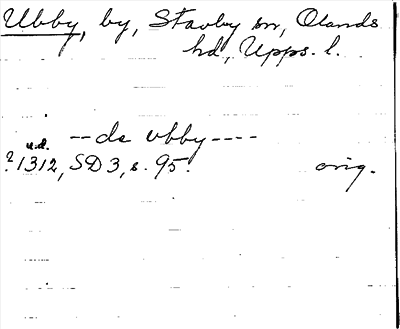 Ubby, by, Stavby sn, Olands
hd, Upps. l.
--de vbby----
u.d.
?1312, SD 3, s. 95. orig.